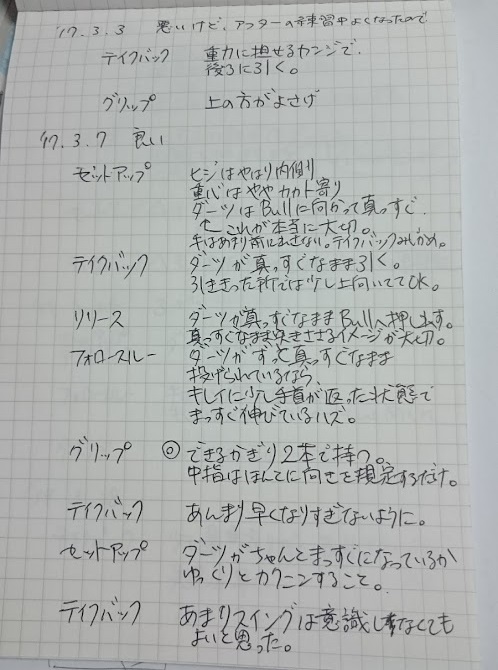 '17.3.3 悪いけど、アフターの練習中よくなったので
テイクバック 重力に担せるカンジで、
後ろに引く。
グリップ 上の方がよさげ
'17.3.7 良い
セットアップ ヒジはやはり内側り
重心はややカカト寄り
ダーツはBullに向かって真っすぐ.
↑これが本当に大切。
手はあまり前にわさない。テイクバックみじかめ。
テイクバック ダーツが真っすぐなまま引く。
引ききった所では少し上向いててOK。
リリース ダーツが真っすぐなままBullへ押し出す。
真っすぐなまま突きささるイメージが大切。
フォロースルー ダーツがずっと真っすぐなまま
投げられているなら、
キレイに少し手首が返った状態で
まっすぐ伸びているハズ。
グリップ ◎ できるかぎり2本で持つ。
中指はほんとに向きを規定するだけ。
テイクバック あんまり早くなりすぎないように。
セットアップ ダーツがちゃんとまっすぐになっているか
ゆっくりとカクニンすること。
テイクバック あまりスイングは意識しすぎなくても
よいと思った。